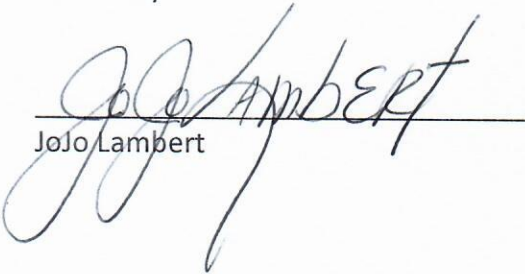 JoJo LAmbERt
JoJo Lambert